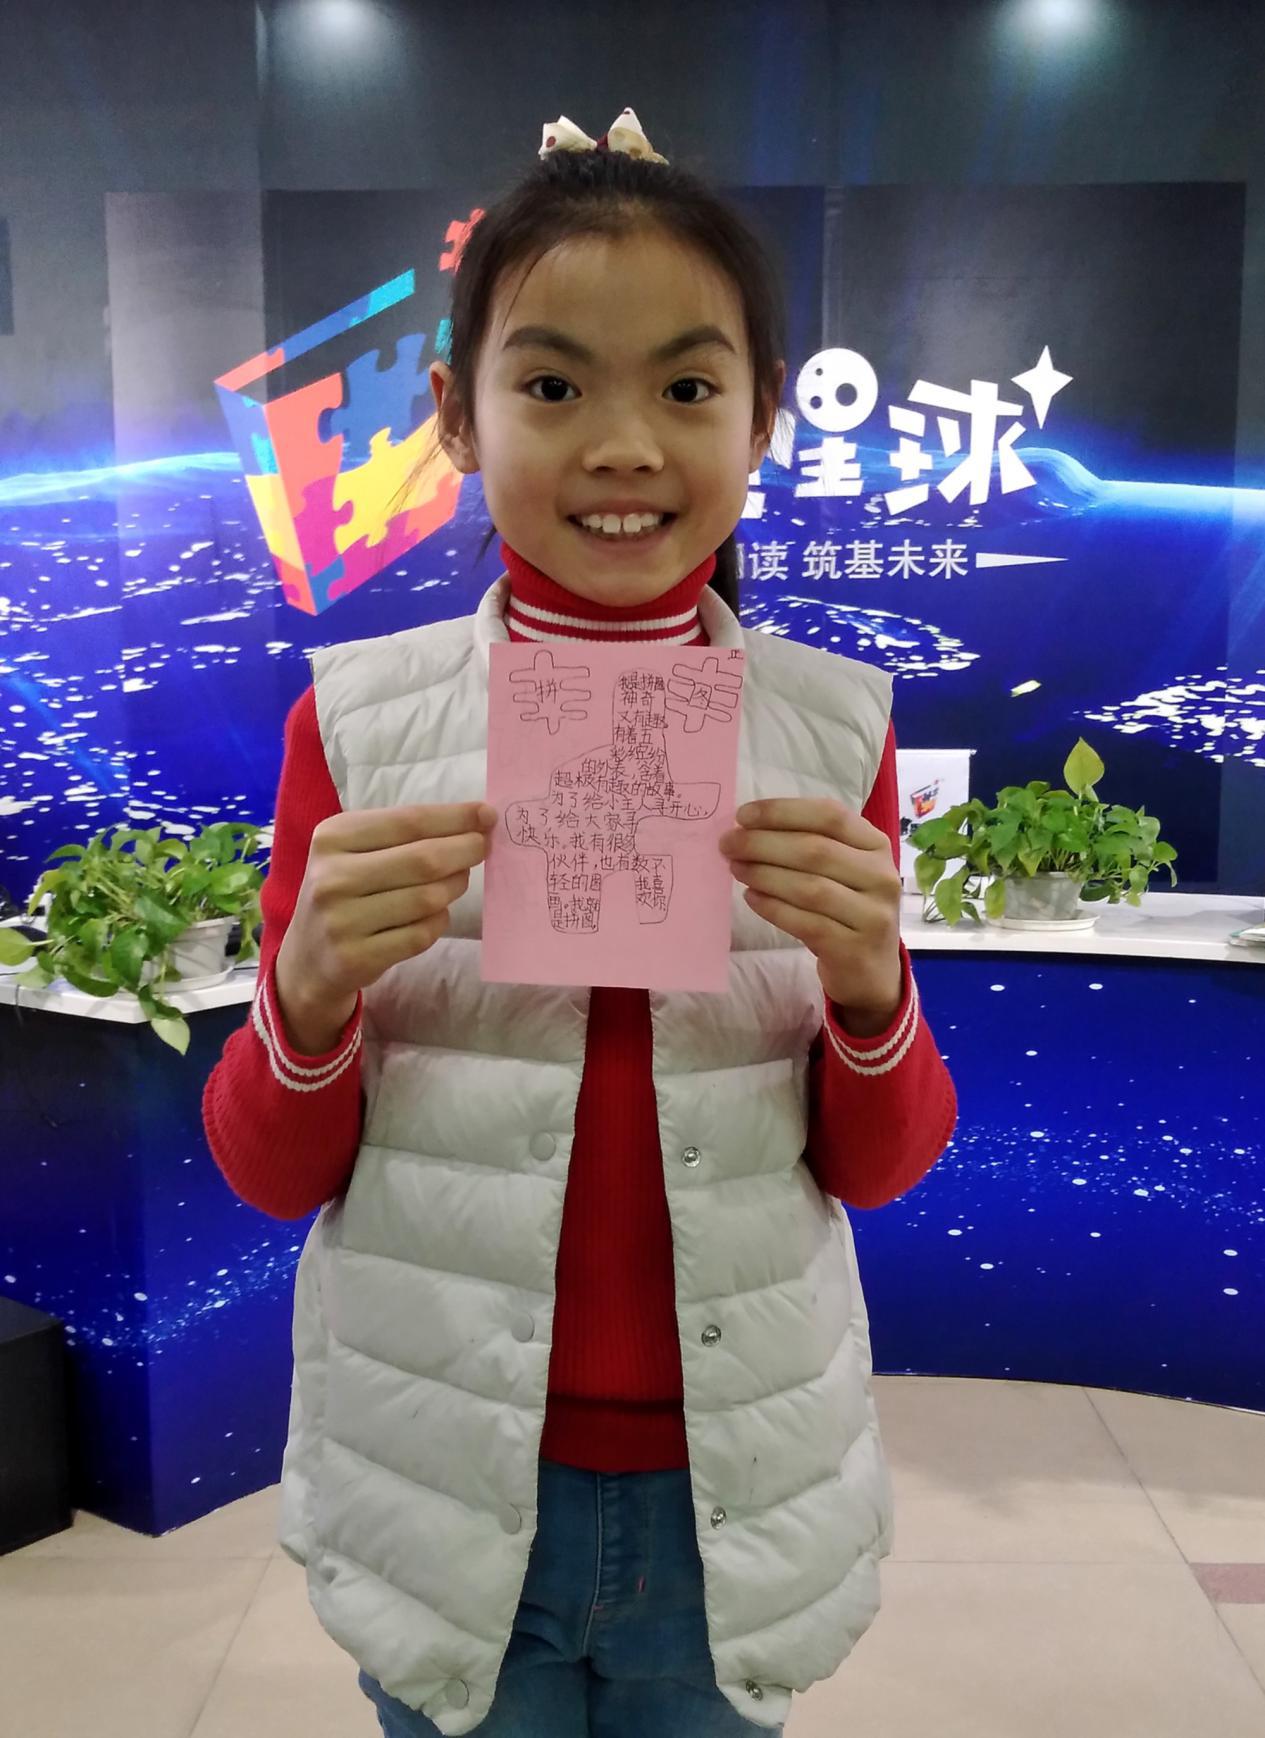 星球
读 筑基未来
正
拼
图
我是拼图
神奇
又有趣
有着五
彩缤纷
的外表,含着
超极有趣的故事。
为了给小主人寻开心,
为了给大家寻
快乐。我有很多
伙伴,也有数不
轻的图
画。我就
是拼图,
我喜
欢你